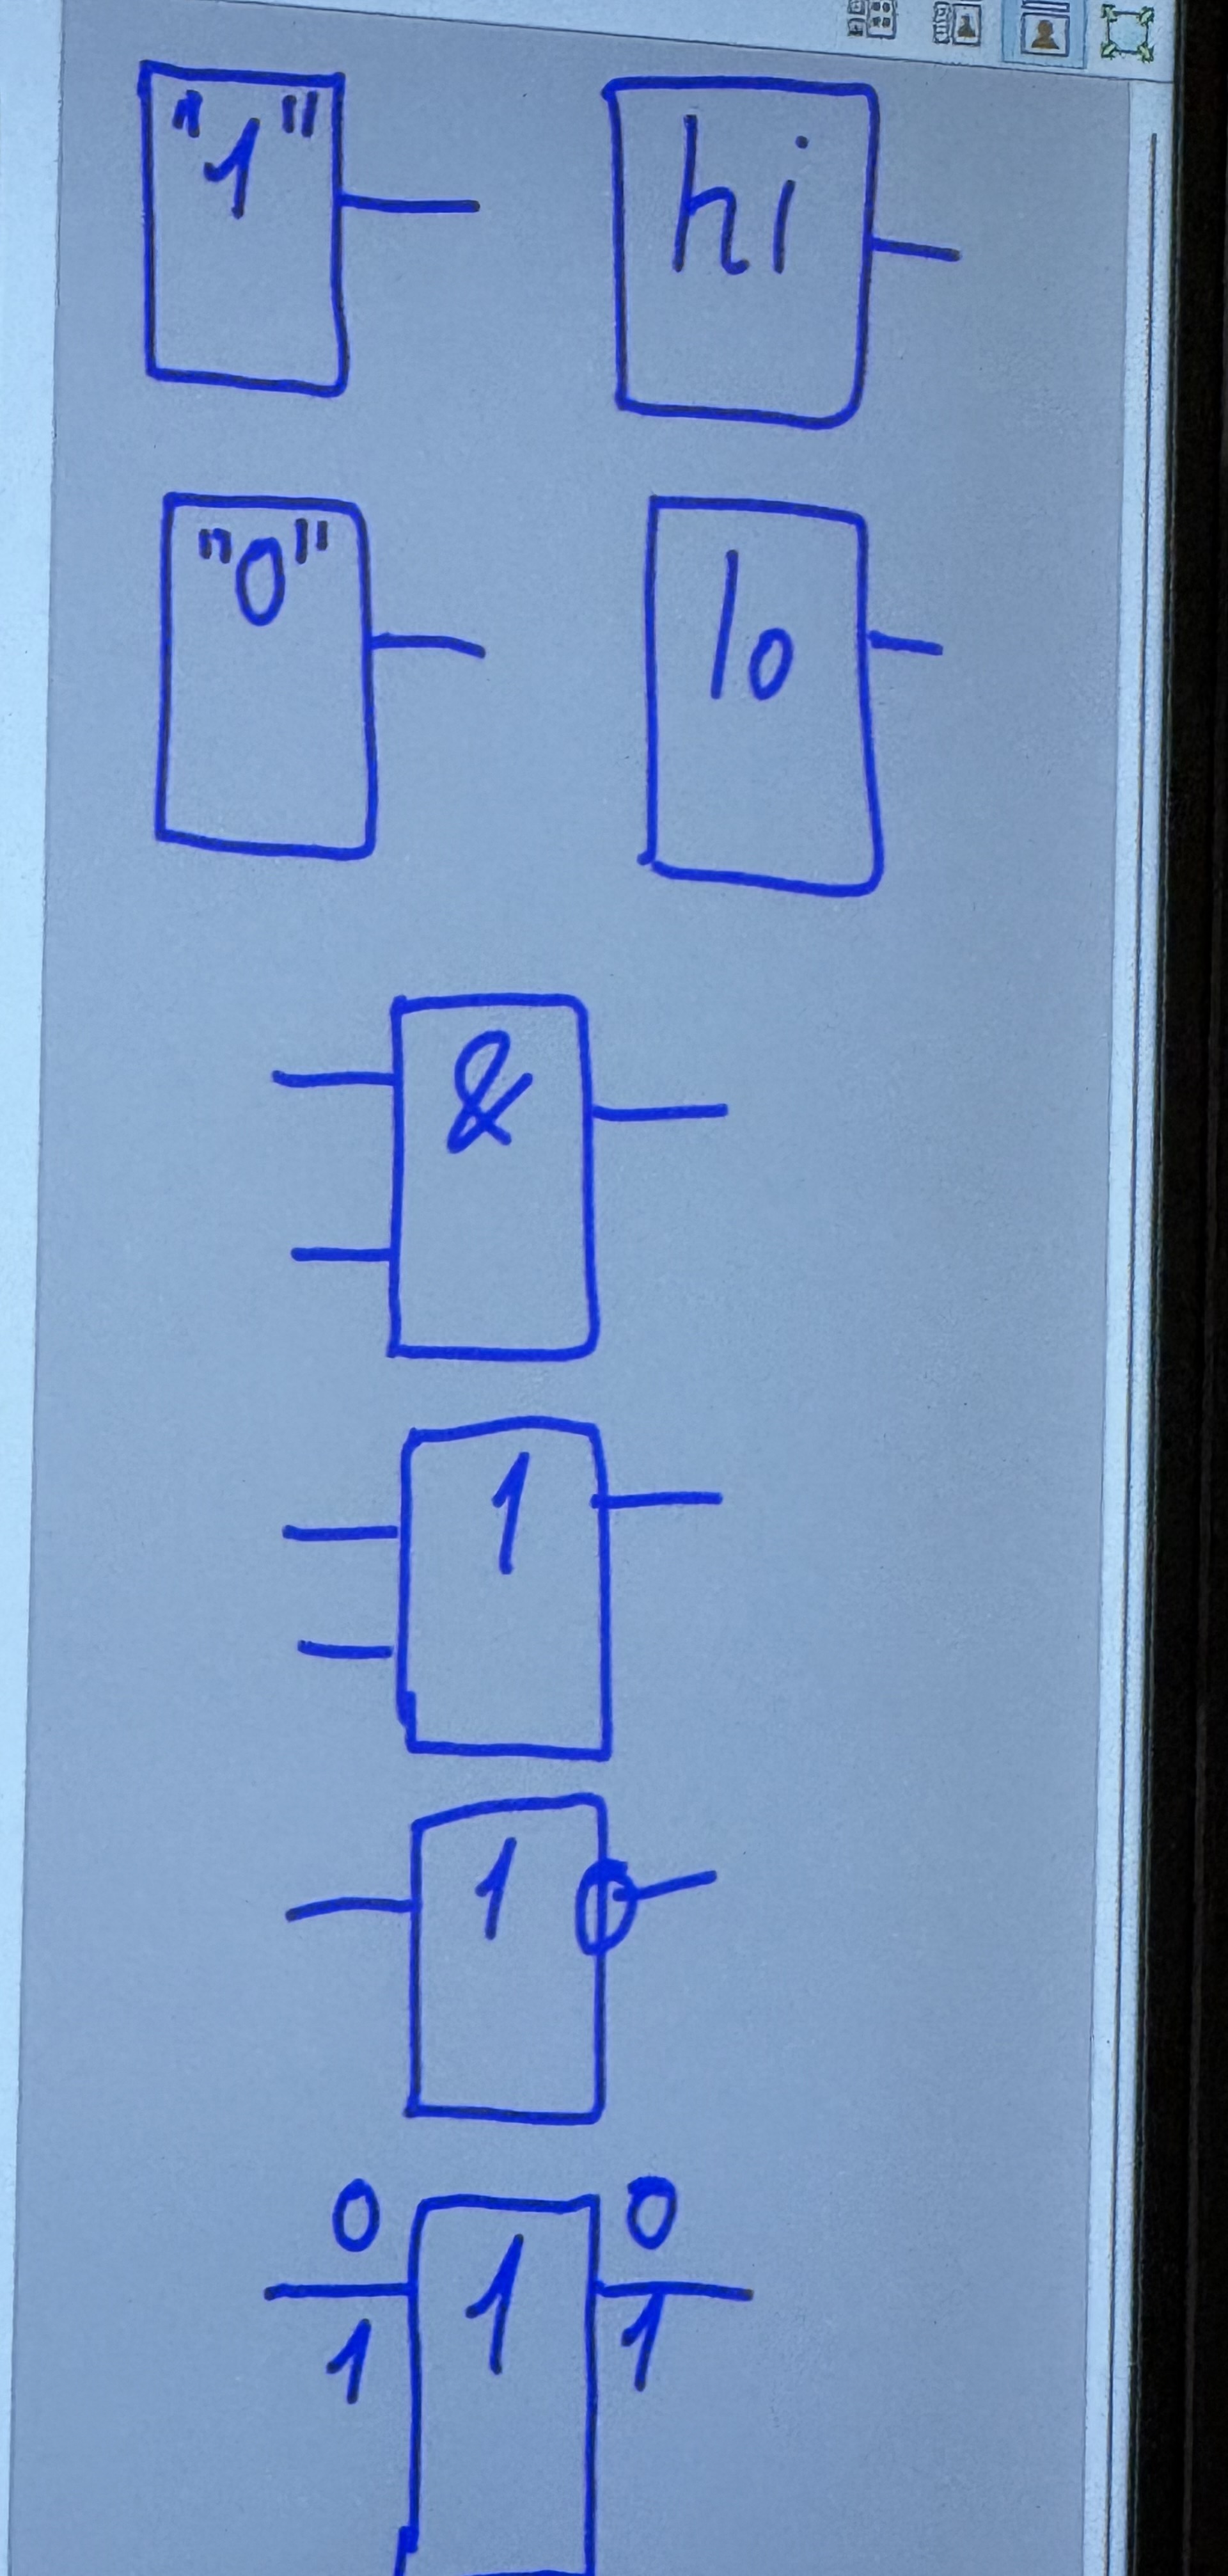 "1" hi
"0" lo
&
1
1
0 0
1
1 1